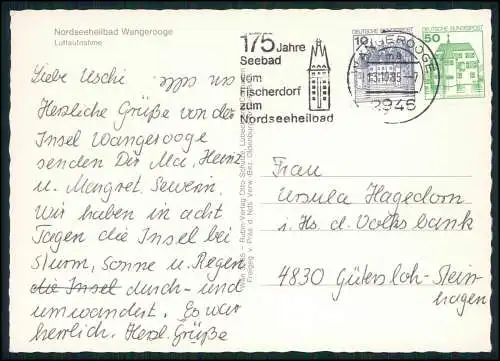 Nordseeheilbad Wangerooge
Luftaufnahme
175 Jahre
Seebad
vom
Fischerdorf
zum
Nordseeheilbad
WANGEROOGE
13.10.85-7
2946
DEUTSCHE BUNDESPOST
10
DEUTSCHE BUNDESPOST
50
Liebe Uschi
Herzliche Grüße von der
Insel Wangerooge
senden Dir Ma, Heinz
u. Margret, Severin.
Wir haben in acht
Tagen die Insel bei
Sturm, Sonne u. Regen
die Insel durch- und
umwandert. Es war
herrlich. Herzl. Grüße
Frau
Ursula Hagedorn
i. Hs. d. Volksbank
4830 Gütersloh-Stein-
hagen